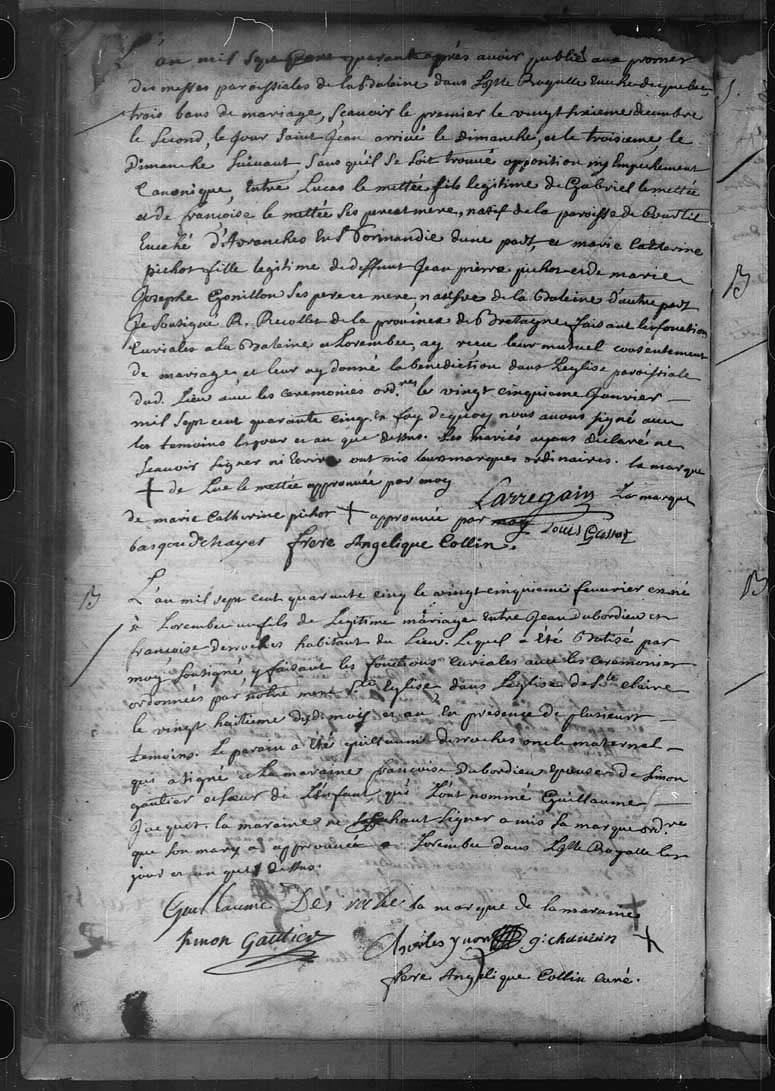 L'an mil sept cent quarante après avoir publié aux prones
des messes paroissiales de la Baleine dans L'jsle Royalle Eveché de quebec
trois bans de mariage, Scavoir le premier le vingt sixieme decembre
le second, le jour Saint Jean arrivé le dimanche, et le troisieme, le
Dimanche Suivant, Sans qu'il se soit trouvé opposition ny Empechement
Canonique Entre Lucas le mettée fils legitime de Gabriel le mettée
et de françoise le mettée Ses pere et mere, natif de la paroisse de Courtil
Eveché D'Avranches En Normandie dune part, et marie Catherine
pichot fille legitime de deffunt Jean pierre pichot et de marie
Josephe Gonillon Ses pere et mere, native de la Baleine d'autre part
Je Soussigné R. Recollet de la province de Bretagne faisant les fonctions
Curiales a la Baleine et Lorembec, ay receu leur mutuel consentement
de mariage et leur ay donné la benediction dans l'eglise paroissiale
dud. Lieu avec les ceremonies ord.res le vingt cinquieme Janvier
mil Sept cent quarante cinq. En foy de quoy nous avons signé avec
les temoins les jour et an que dessus. Les mariés ayans declaré ne
Scavoir Signer ni Ecrire ont mis leurs marques ordinaires. la marque
+ de Luc le mettée approuvée par moy Larregain La marque
de marie Catherine pichot + approuvée par moy Louis
frere Angelique Collin.
B L'an mil sept cent quarante cinq le vingt cinquieme fevrier est né
à Lorembec un fils de Legitime mariage Entre Jean dubordieu et
françoise desroches habitant du Lieu. Lequel a été Batisé par
moy Soussigné y faisant les fonctions curiales avec les ceremonies
ordonnées par notre mere S.te Eglise dans L'eglise de S.te Claire
le vingt huitieme du d. mois et an En presence de plusieurs
temoins. Le parain a été guillaume desroches oncle maternel
qui a signé et La maraine françoise dubordieu epouse de Simon
gautier et Sœur de L'enfant, qui L'ont nommé Guillaume
Jacques. la maraine ne Sachant Signer a mis Sa marque ord.re
que son mary a approuvée a Lorembec dans L'jsle Royalle les
jour et an que dessus.
Guillaume Des roches la marque de la maraine
Simon Gautier Charles yvon g. chauvin +
frere Angelique Collin curé.